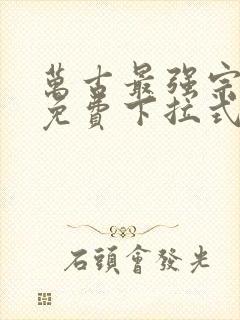 萬古最强宗
免費下拉式
石頭會發光